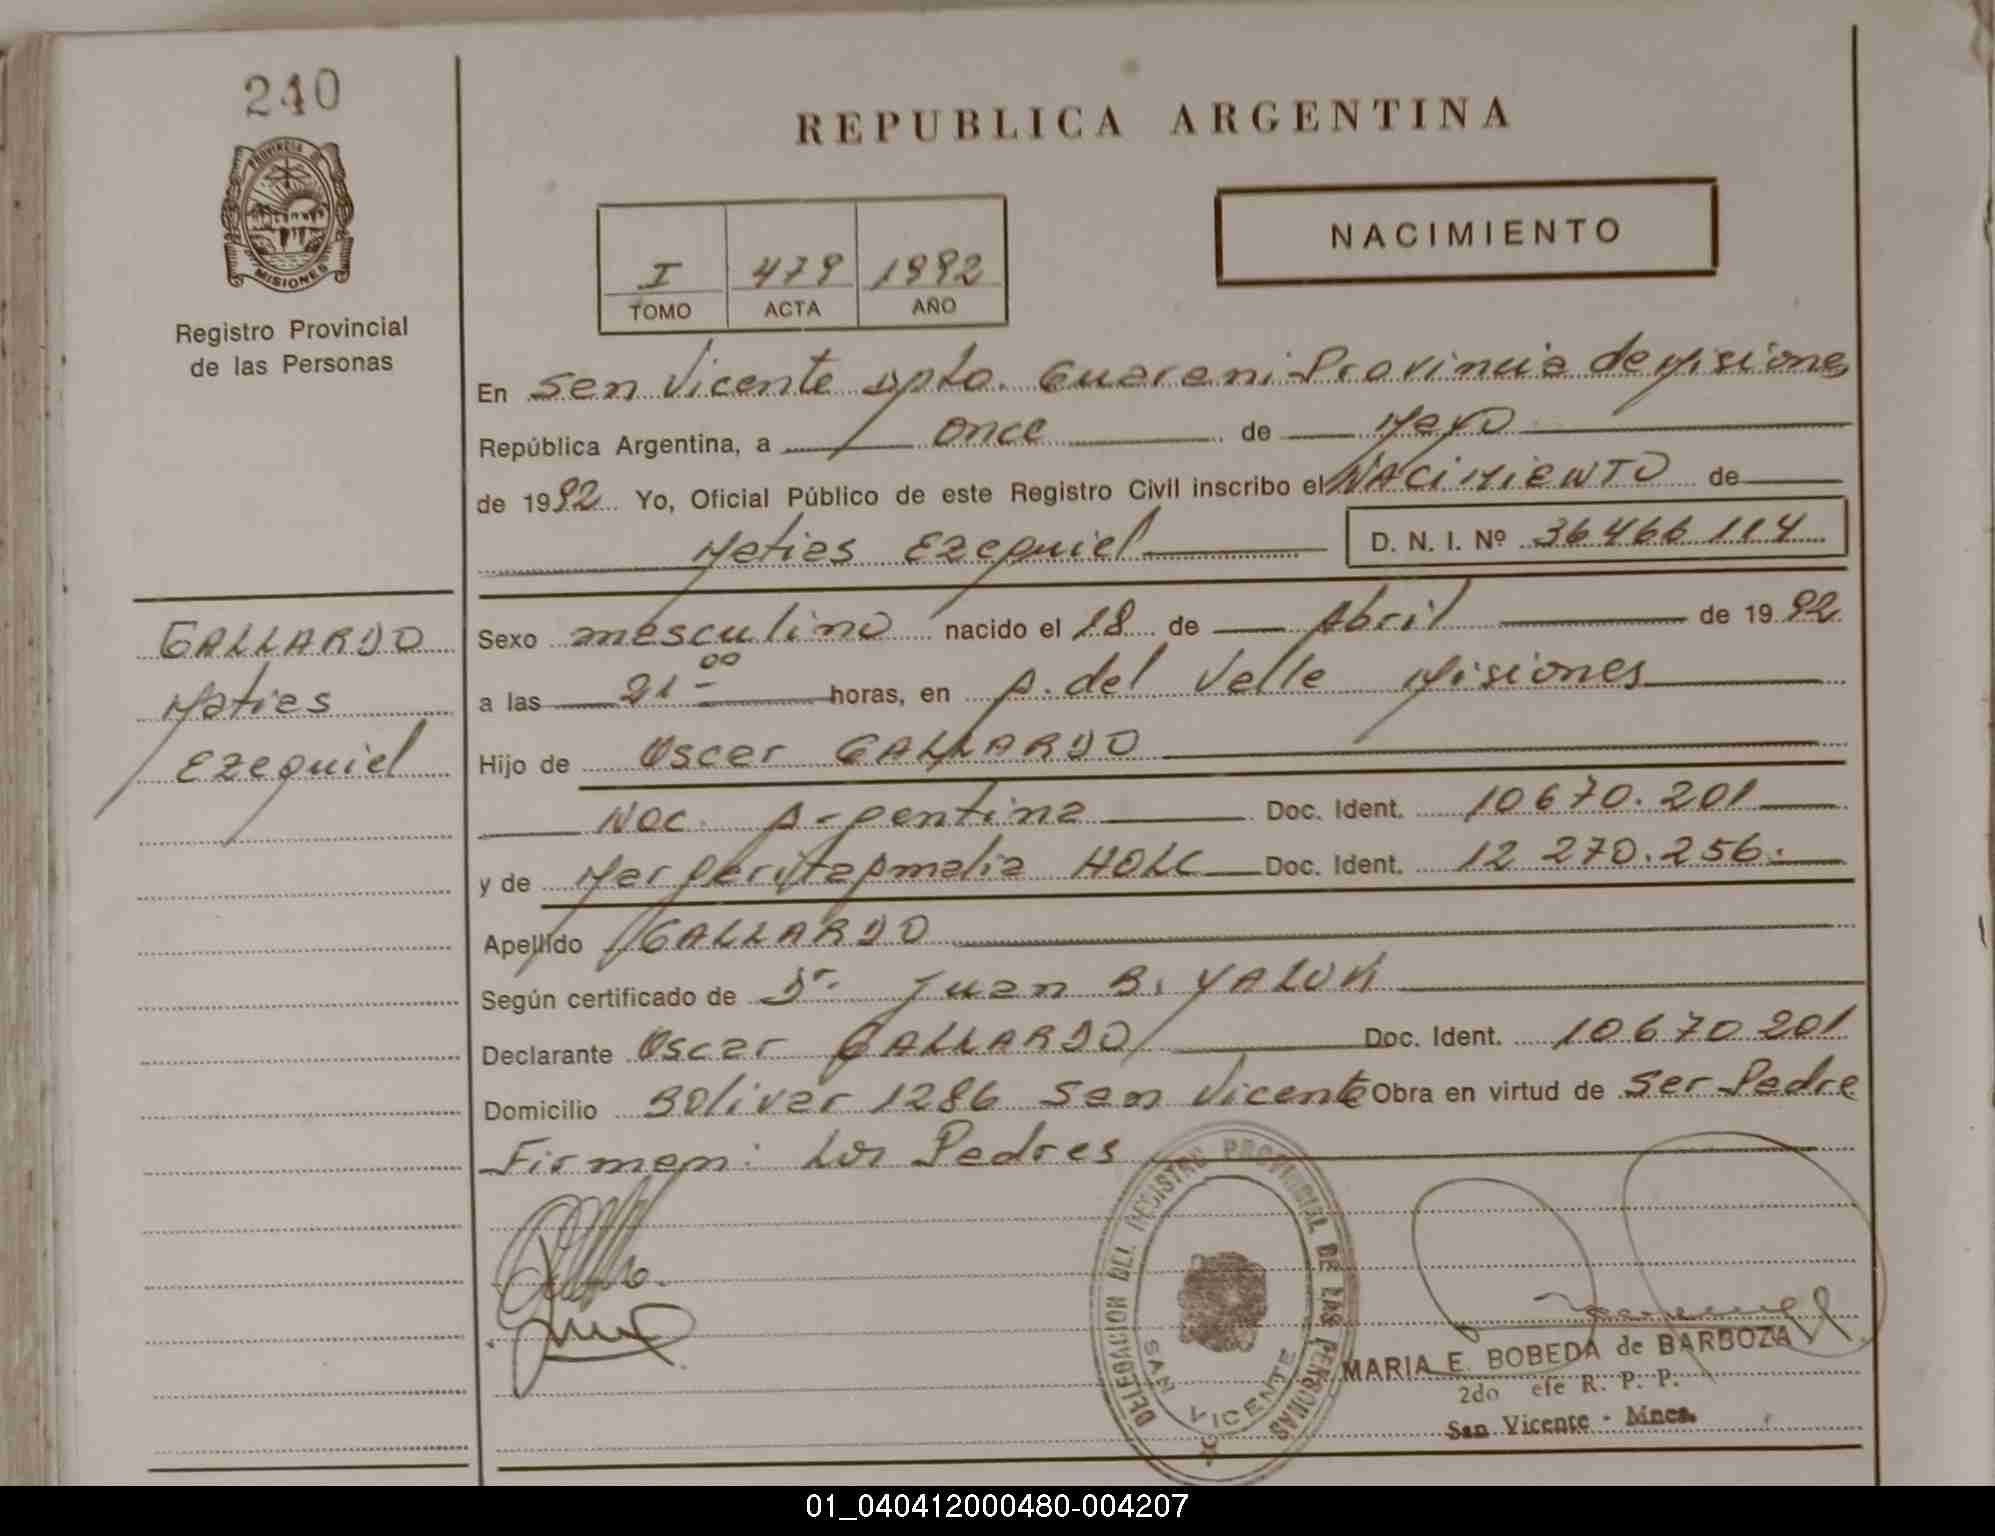 240
PROVINCIA DE
MISIONES
Registro Provincial
de las Personas
REPUBLICA ARGENTINA
NACIMIENTO
I 479 1992
TOMO ACTA AÑO
En San Vicente Dpto. Guarani Provincia de Misiones
República Argentina, a once de Mayo
de 1992 Yo, Oficial Público de este Registro Civil inscribo el NACIMIENTO de
Matias Ezequiel D. N. I. Nº 36466114
GALLARDO
Matias
Ezequiel
Sexo masculino nacido el 18 de Abril de 1992
a las 21 00 horas, en A. del Valle Misiones
Hijo de Oscar GALLARDO
Nac. Argentina Doc. Ident. 10670.201
y de Margarita Amalia HOLC Doc. Ident. 12 270.256.
Apellido GALLARDO
Según certificado de Dr. Juan B. YALUK
Declarante Oscar GALLARDO Doc. Ident. 10670201
Domicilio Bolivar 1286 San Vicente Obra en virtud de ser Padre
Firman: Los Padres
DELEGACION DEL REGISTRO PROVINCIAL DE LAS PERSONAS
SAN VICENTE
MARIA E. BOBEDA de BARBOZA
2do efe R. P. P.
San Vicente - Mnes.
01_040412000480-004207